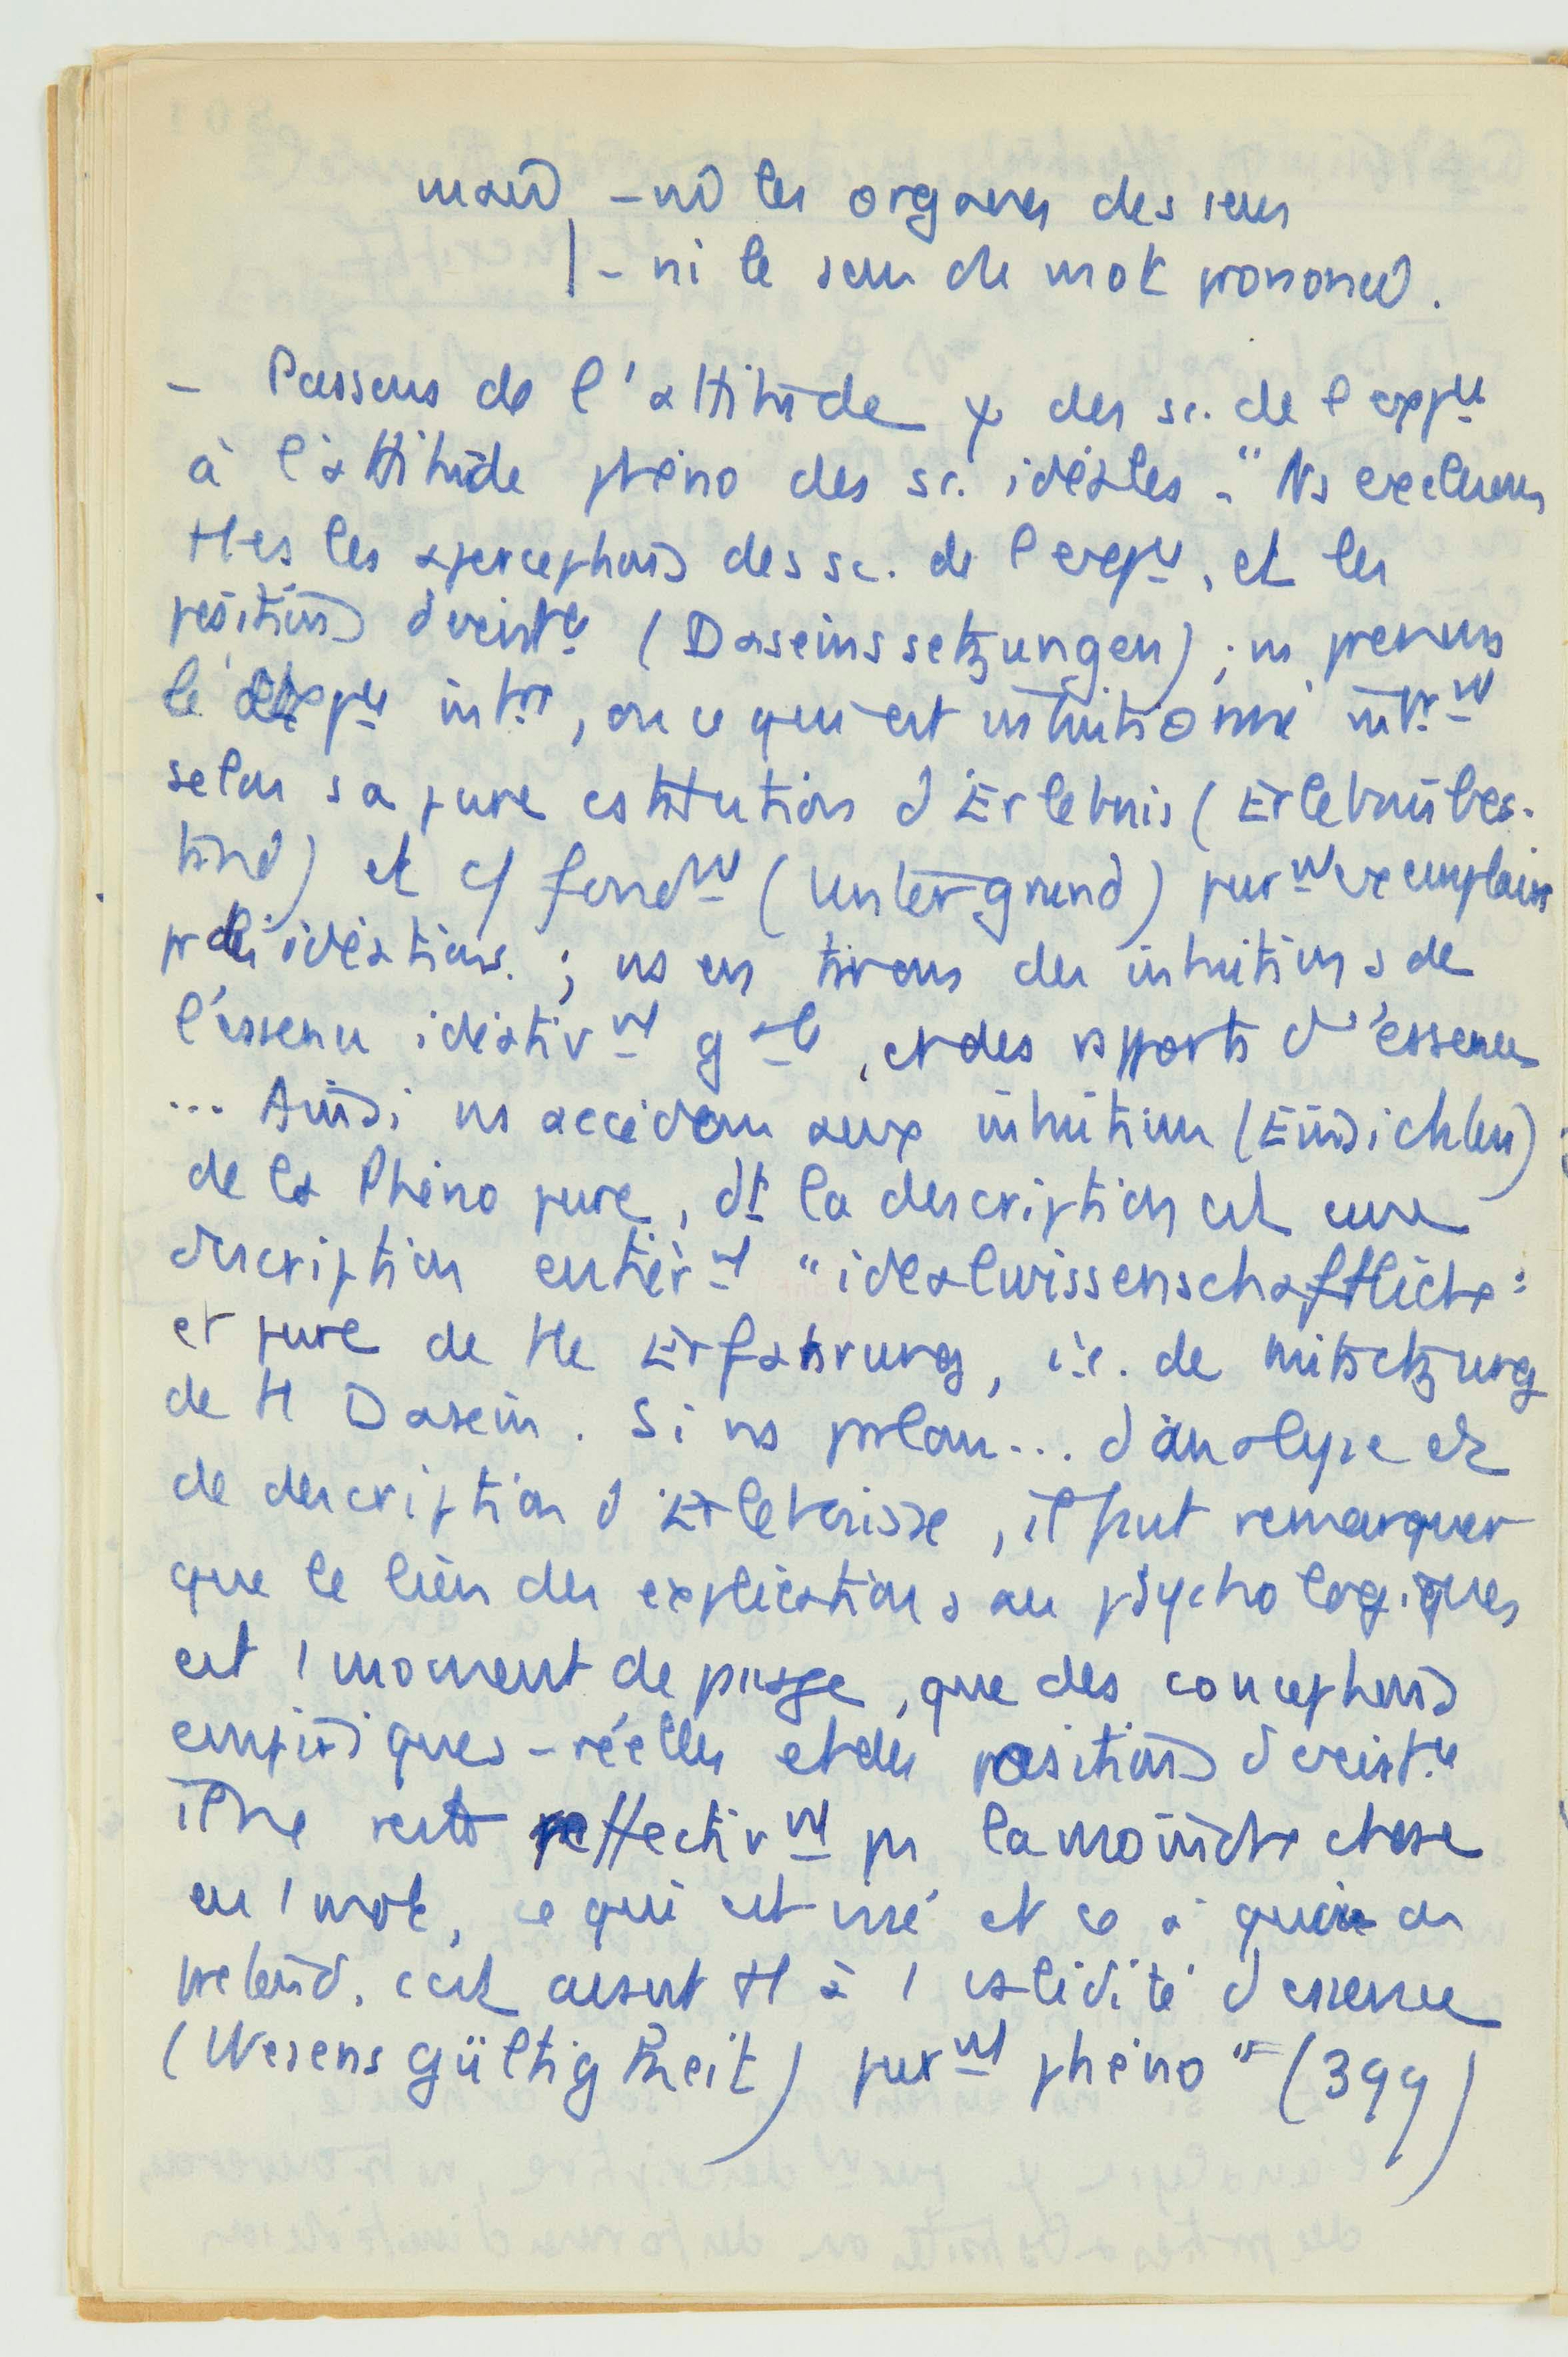 mais - ni les organes des sens
- ni le sens de mot prononcé.
- Passons de l'attitude ψ des sc. de l'expce
à l'attitude phéno des sc. idéales. "Ns excluons
ttes les aperceptions des sc. de l'expce, et les
positions d'existce (Daseinssetzungen) ; ns prenons
l'expce int, ou ce qui est intuitionné intmt
selon sa pure cstitution d'Erlebnis (Erlebnisbes-
tand) et c/ fondmt (Untergrund) purmt exemplaire
pr des idéations ; ns en tirons des intuitions de
l'essence idéativmt gale, et des rpports d'essence
... Ainsi ns accédons aux intuitions (Einsichten)
de la Phéno pure, dt la description est une
description entièrmt "idealwissenschaftliche"
et pure de tte Erfahrung, i.e. de Mitsetzung
de tt Dasein. Si ns prlons... d'analyse et
de description d'Erlebnisse, il faut remarquer
que le lien des explications au psychologiques
est 1 moment de pssge, que des conceptions
empiriques-réelles et des positions d'existce
il ne reste effectivmt ps la moindre chose
en 1 mot, ce qui est visé et ce à quoi on
prétend, c'est avant tt à 1 validité d'essence
(Wesensgültigkeit) purmt phéno" (399)